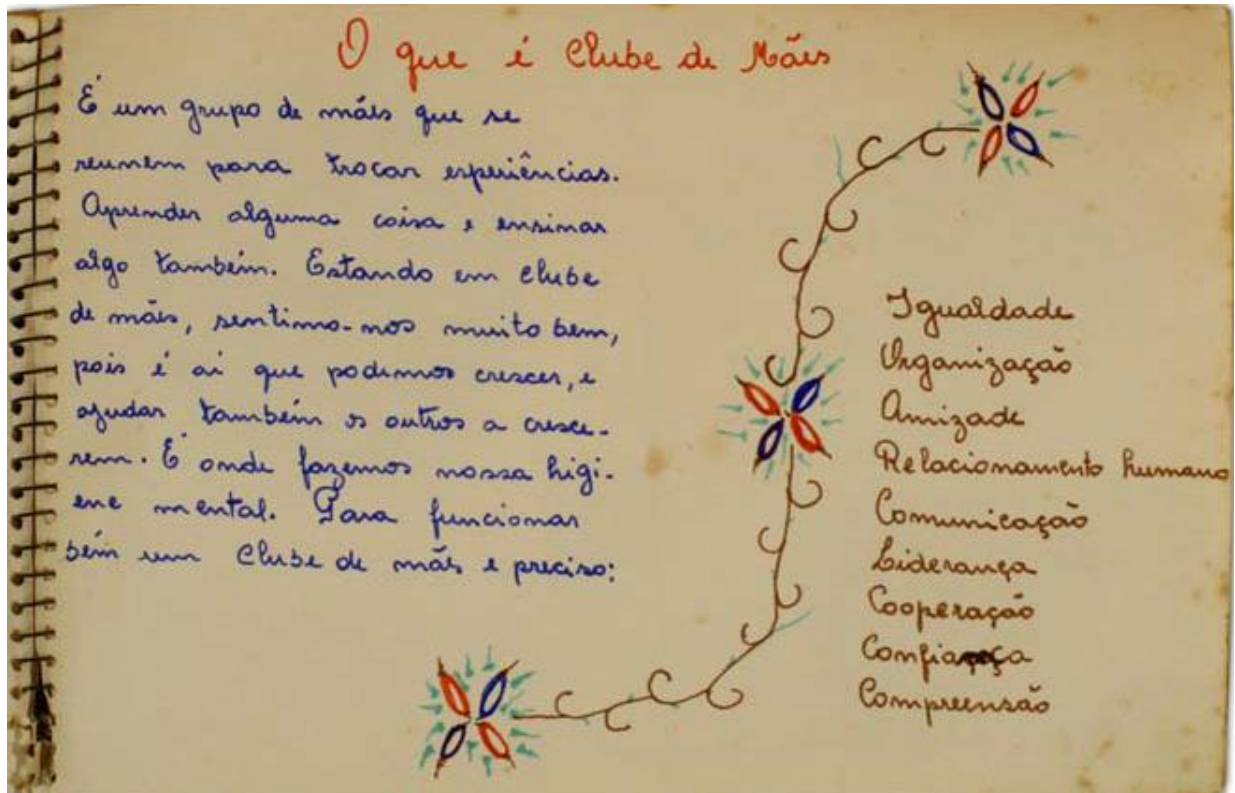 O que é Clube de Mães
É um grupo de mães que se
reunem para trocar experiências.
Aprender alguma coisa e ensinar
algo também. Estando em clube
de mães, sentimo-nos muito bem,
pois é aí que podemos crescer, e
ajudar também os outros a cresce-
rem. É onde fazemos nossa higi-
ene mental. Para funcionar
bém um Clube de mães e preciso:
Igualdade
Organização
Amizade
Relacionamento humano
Comunicação
Liderança
Cooperação
Confiança
Compreensão